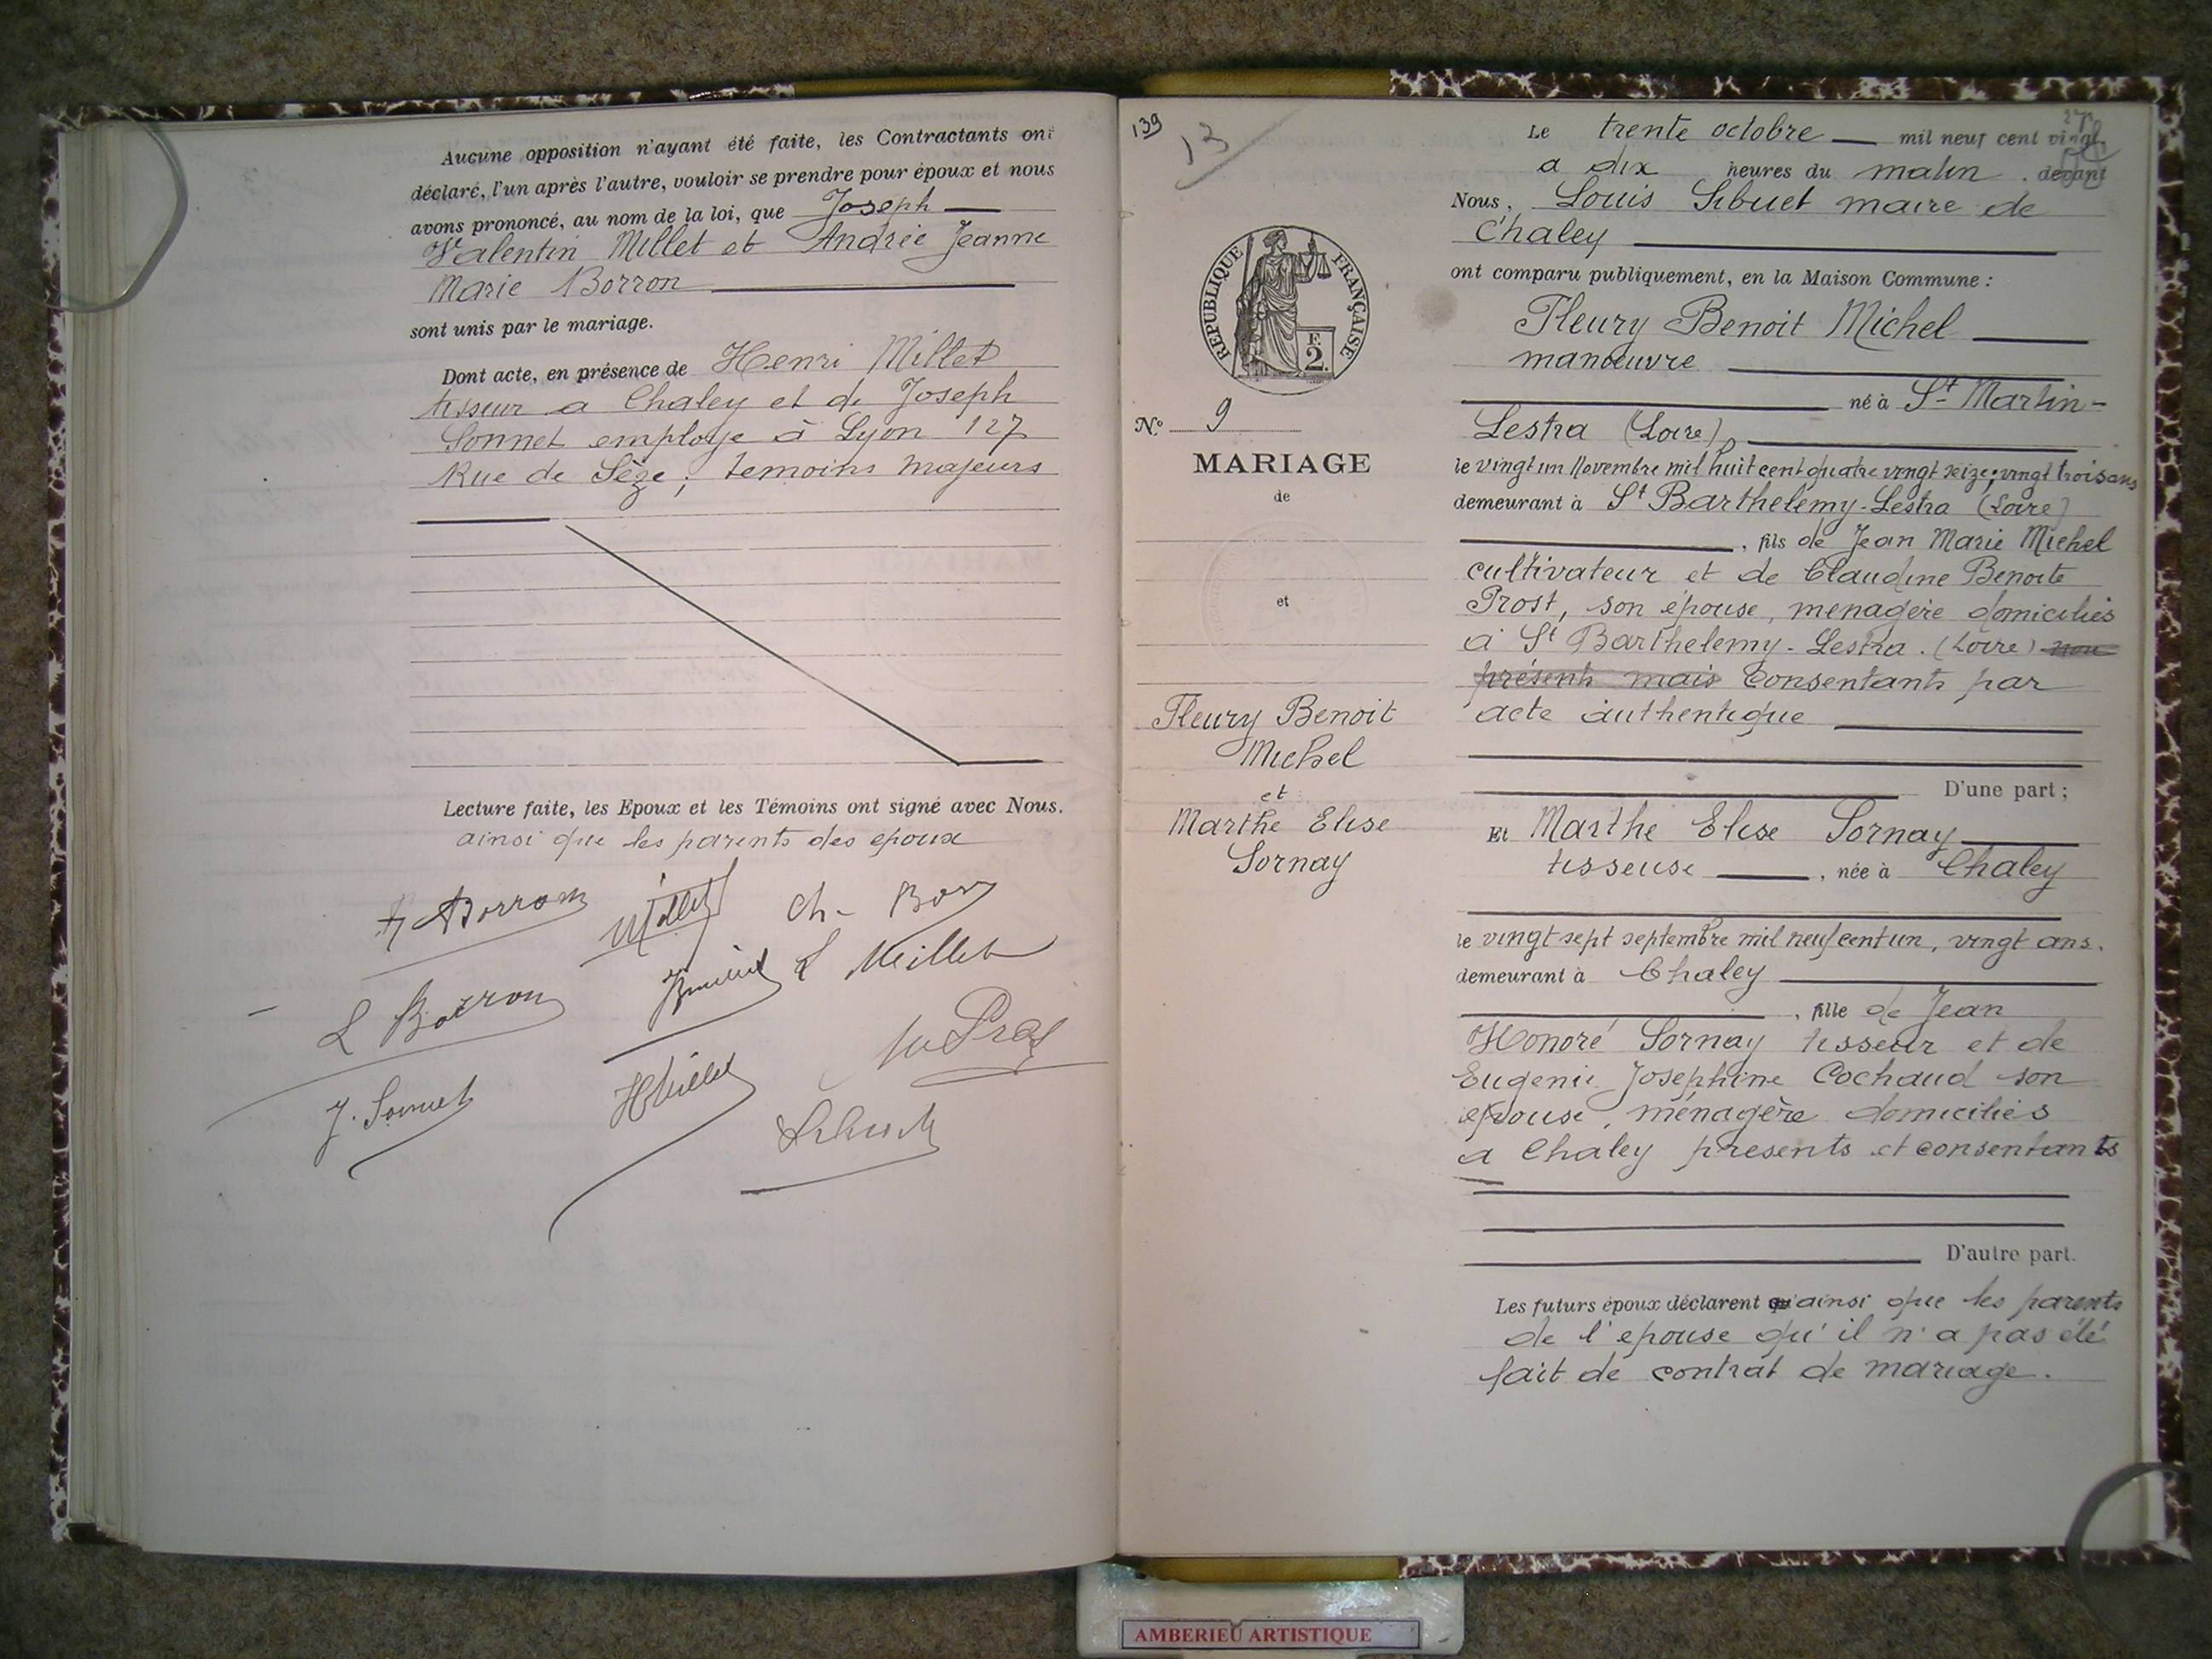 Aucune opposition n'ayant été faite, les Contractants ont
déclaré, l'un après l'autre, vouloir se prendre pour époux et nous
avons prononcé, au nom de la loi, que Joseph
Valentin Millet et Andrée Jeanne
Marie Borron
sont unis par le mariage.
Dont acte, en présence de Henri Millet
tisseur a Chaley et de Joseph
Sonnet employe à Lyon 127
Rue de Sèze; temoins majeurs
Lecture faite, les Epoux et les Témoins ont signé avec Nous.
ainsi que les parents des epoux
A Borron Millet Ch-
L Borron L Millet
J. Sonnet HMillet
139
13
REPUBLIQUE FRANÇAISE
F.
2.
N° 9
MARIAGE
de
et
Fleury Benoit
Michel
et
Marthe Elise
Sornay
Le trente octobre mil neuf cent vingt
a dix heures du matin . devant
Nous, Louis Sibuet maire de
Chaley
ont comparu publiquement, en la Maison Commune :
Fleury Benoit Michel
manœuvre
né à St Martin-
Lestra (Loire)
le vingt un Novembre mil huit cent quatre vingt seize; vingt trois ans
demeurant à St Barthelemy-Lestra (Loire)
, fils de Jean Marie Michel
cultivateur et de Claudine Benoite
Prost, son épouse, menagère domiciliés
à St Barthelemy-Lestra. (Loire) non
présents mais Consentants par
acte authentique
D'une part ;
Et Marthe Elise Sornay
tisseuse , née à Chaley
le vingt sept septembre mil neuf cent un, vingt ans.
demeurant à Chaley
, fille de Jean
Honoré Sornay tisseur et de
Eugenie Josephine Cochaud son
epouse, ménagère domiciliés
a Chaley presents et consentants
D'autre part.
Les futurs époux déclarent qu'ainsi que les parents
de l'epouse qu'il n'a pas été
fait de contrat de mariage.
AMBERIEU ARTISTIQUE